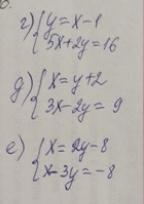 г) { y = x - 1
5x + 2y = 16
д) { x = y + 2
3x - 2y = 9
е) { x = 2y - 8
x - 3y = -8